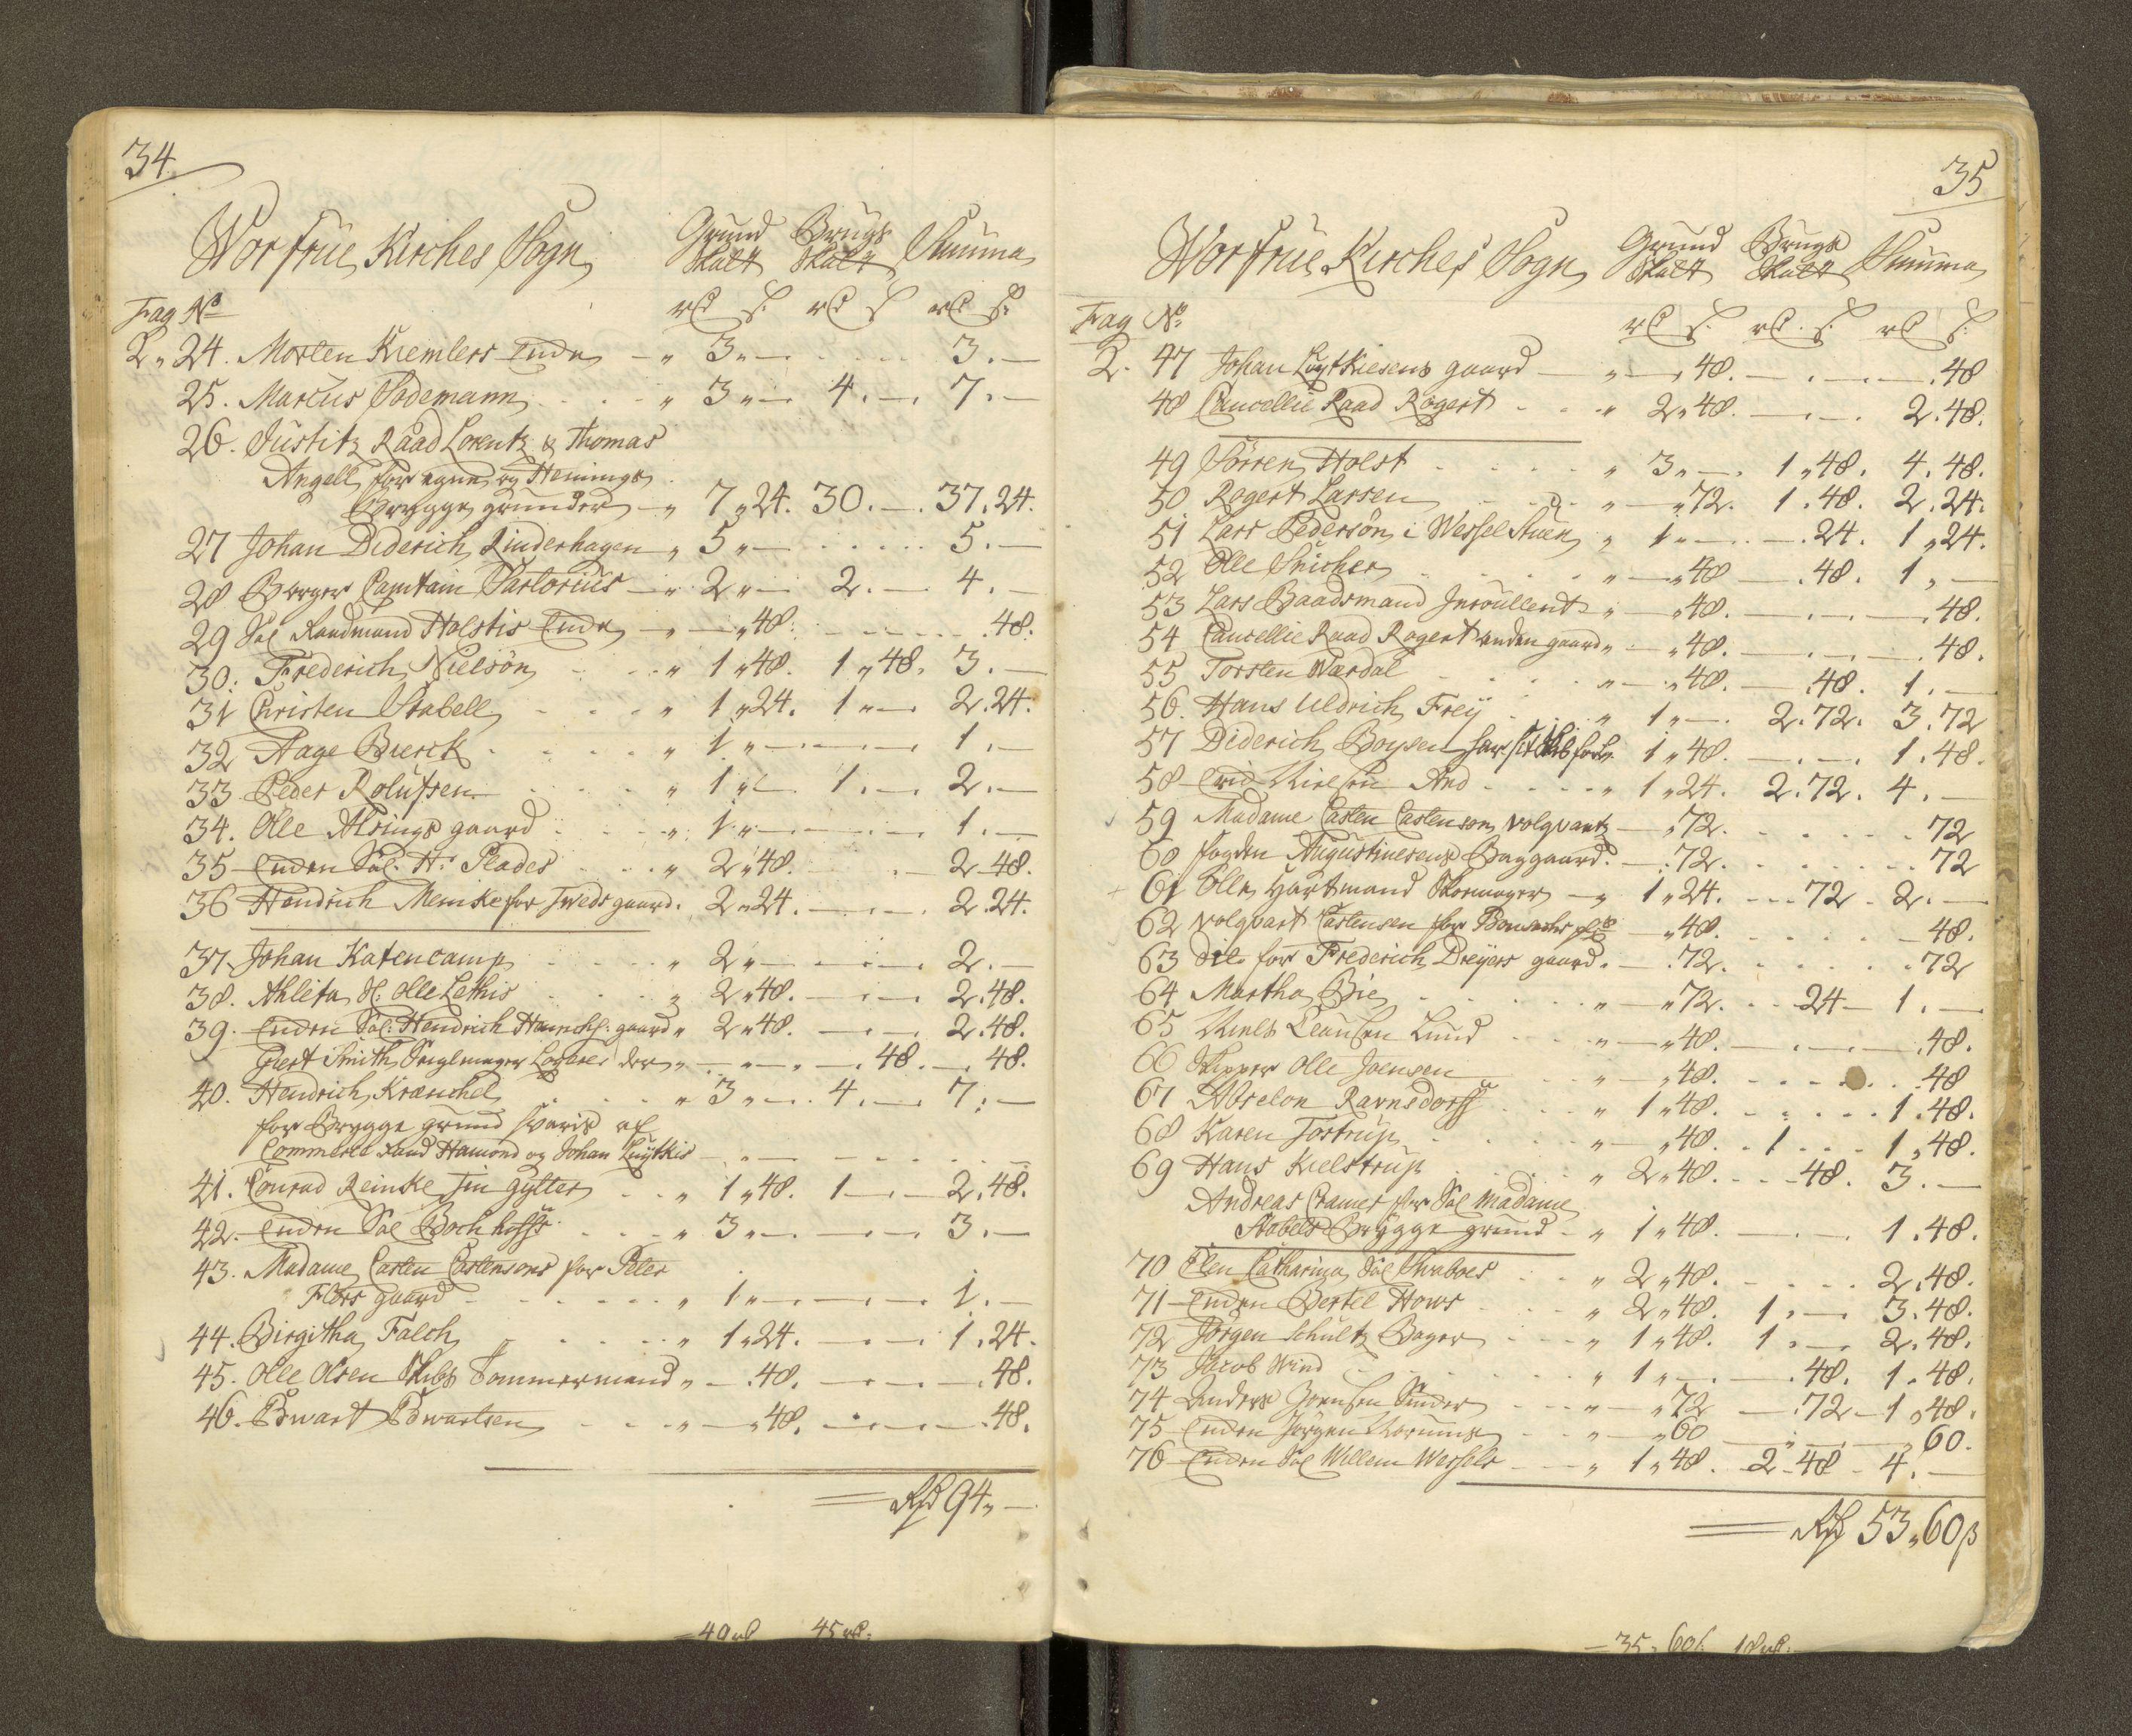 34.
Worfrue Kirches Sogn Grund Skatt Brugs Skatt Summa
Fag No rd s. rd s rd s.
2. 24. Morten Kremlers Enche - " 3 " - . . . . . 3. -
25. Marcus Sodemann . . . " 3 " - 4. - 7. -
26. Justitz Raad Lorentz & Thomas
Angell for egne og Hennings
Brygge grunder - " 7 " 24. 30. - 37. 24.
27 Johan Diderich Rinderhagen " 5 " - . . . . . 5. -
28 Borger Capitain Sartorius - " 2 " - 2. - 4. -
29 Sal Raadmand Holstis Enche - " - " 48. . . . . . 48.
30. Frederich Nielsön . . . " 1 " 48. 1 " 48. 3. -
31 Christen Stabell . . . " 1 " 24. 1 " - 2. 24.
32 Aage Bierck . . . . " 1 " - . - . - 1. -
33 Peder Rolufsen . . . " 1 " - 1. - 2. -
34. Olle Alsings gaard . . . " 1 " - . - . - 1. -
35 Enchen Sal. Hr Peades . . . " 2 " 48. . - 2. 48.
36 Hendrich Meinke for Tweds gaard. 2 " 24. - . - 2. 24.
37. Johan Katencamp . . . . " 2 " - . - . - 2. -
38. Ahlita Sl. Olle Lethis . . . " 2 " 48. - . - 2. 48.
39. Enchen Sal. Hendrich gaard " 2 " 48. - . - 2. 48.
Giert Smith Seiglmager Logerer der " - " - . - . 48. - . 48.
40. Hendrich Kraeuchel . . . " 3 " - . 4. - 7. -
for Brygge grund svaris af
Commerce Raad Hamond og Johan Luytkis - " - - . - . . .
41. Conrad Reinke Jin gytter . . " 1 " 48. 1 - . - 2. 48.
42. Enchen Sal Bochhoffs . . . " 3 " - . - . - 3. -
43. Madame Casten Castensens for Peter
Flörs gaard . . . . . " 1 " - . - . - 1. -
44. Birgitha Falch . . . . " 1 " 24. - . - 1. 24.
45. Olle Olsen Skibs Tömmermand " - . 48. - . - . - . 48.
46. Ewart Ewartsen . . . " - " 48. - . - . - . 48.
= Rd 94 " -
= 49 rd 45 rd.
35
Worfrue Kirches Sogn Grund Skatt Brugs Skatt Summa
Fag No. rd s. rd. s. rd s.
2. 47 Johan Luytkiesens gaard - " - " 48. - . - . - . 48
48 Cancellie Raad Rogert . . " 2 " 48. - . - . 2. 48.
49 Sörren Holst . . . . " 3 " - . 1 " 48. 4. 48.
50 Rogert Larsen . . . " - " 72. 1. 48. 2. 24.
51 Lars Pedersön i Wessel Stuen " 1 " - . - . 24. 1 " 24.
52 Olle Snicher . . . . " - " 48 - . 48. 1 " -
53 Lars Baadsmand Inroullerit " - " 48. - . - . - . 48.
54 Cancellie Raad Rogert anden gaard " - " 48. - . - . - . 48.
55 Torsten Wærdal . . . . " - " 48. - . 48. 1. -
56. Hans Uldrich Frey . . . " 1 " - . 2. 72. 3. 72
57 Diderich Boysen har sit Skib 1 " 48. - . - . 1. 48.
58 Erich Nielsen . . . . " 1 " 24. 2. 72. 4. -
59 Madame Casten Castensen Volqvartz - " 72. . . . . . 72
60 fogden Augustinesens Baggaard. - . 72. . . . . . 72
61 Olle Hartmand Skoemager - " 1 " 24. . . . 72 . 2. -
62 Volqvart Castensen for - " 48. . . . . - 48.
63 Dito for Frederich Dreyers gaard. - . 72. . . . . . 72
64 Martha Bie . . . . " - " 72. . . 24 - 1. -
65 Niels Clausen Lund . . . " - " 48. - . - . - . 48.
66 Skipper Olle Joensen . . " - " 48. . . . . . 48
67 Abselon Ravnsdorff . . . " 1 " 48. . . . . . 1. 48.
68 Karen Tostrup . . . . " - " 48. . 1 . . . 1 " 48.
69 Hans Kielstrup . . . . " 2 " 48. . . . 48. 3. -
Andreas Cramer for Sal Madame
Stabels Brygge grund - " 1 " 48. - . - . 1. 48.
70 Elen Catharina Sal Swaboes . . " 2 " 48. . . . . 2. 48.
71 Enchen Bertel Hows . . . " 2 " 48. 1. - 3. 48.
72 Jörgen Schultz Bager . . " 1 " 48. 1. - 2. 48.
73 Jacob Wind . . . . . " 1 " - . - . 48. 1. 48.
74 Anders Joensen . . . " - " 72 - . 72 - 1 " 48.
75 Enchen Jörgen . . " - " 60 - . - . - " 60.
76 Enchen Sal Willem Wessels . . " 1 " 48. 2. 48 . 4. -
= Rd 53 " 60 ß
= 35 " 60 s. 18 rd.